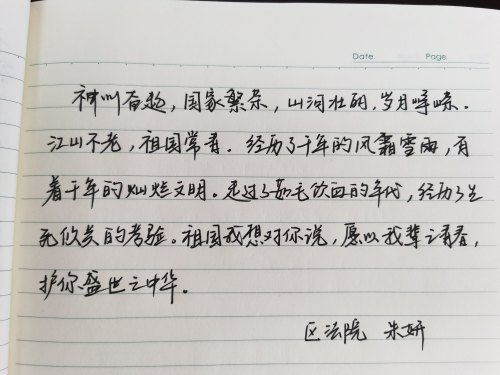 Date Page
神州奋起，国家繁荣，山河壮丽，岁月峥嵘。
江山不老，祖国常青。经历了千年的风霜雪雨，有
着千年的灿烂文明。走过了茹毛饮血的年代，经历了生
死攸关的考验。祖国我想对你说，愿以我辈之青春，
护你盛世之中华。
区法院 朱妍